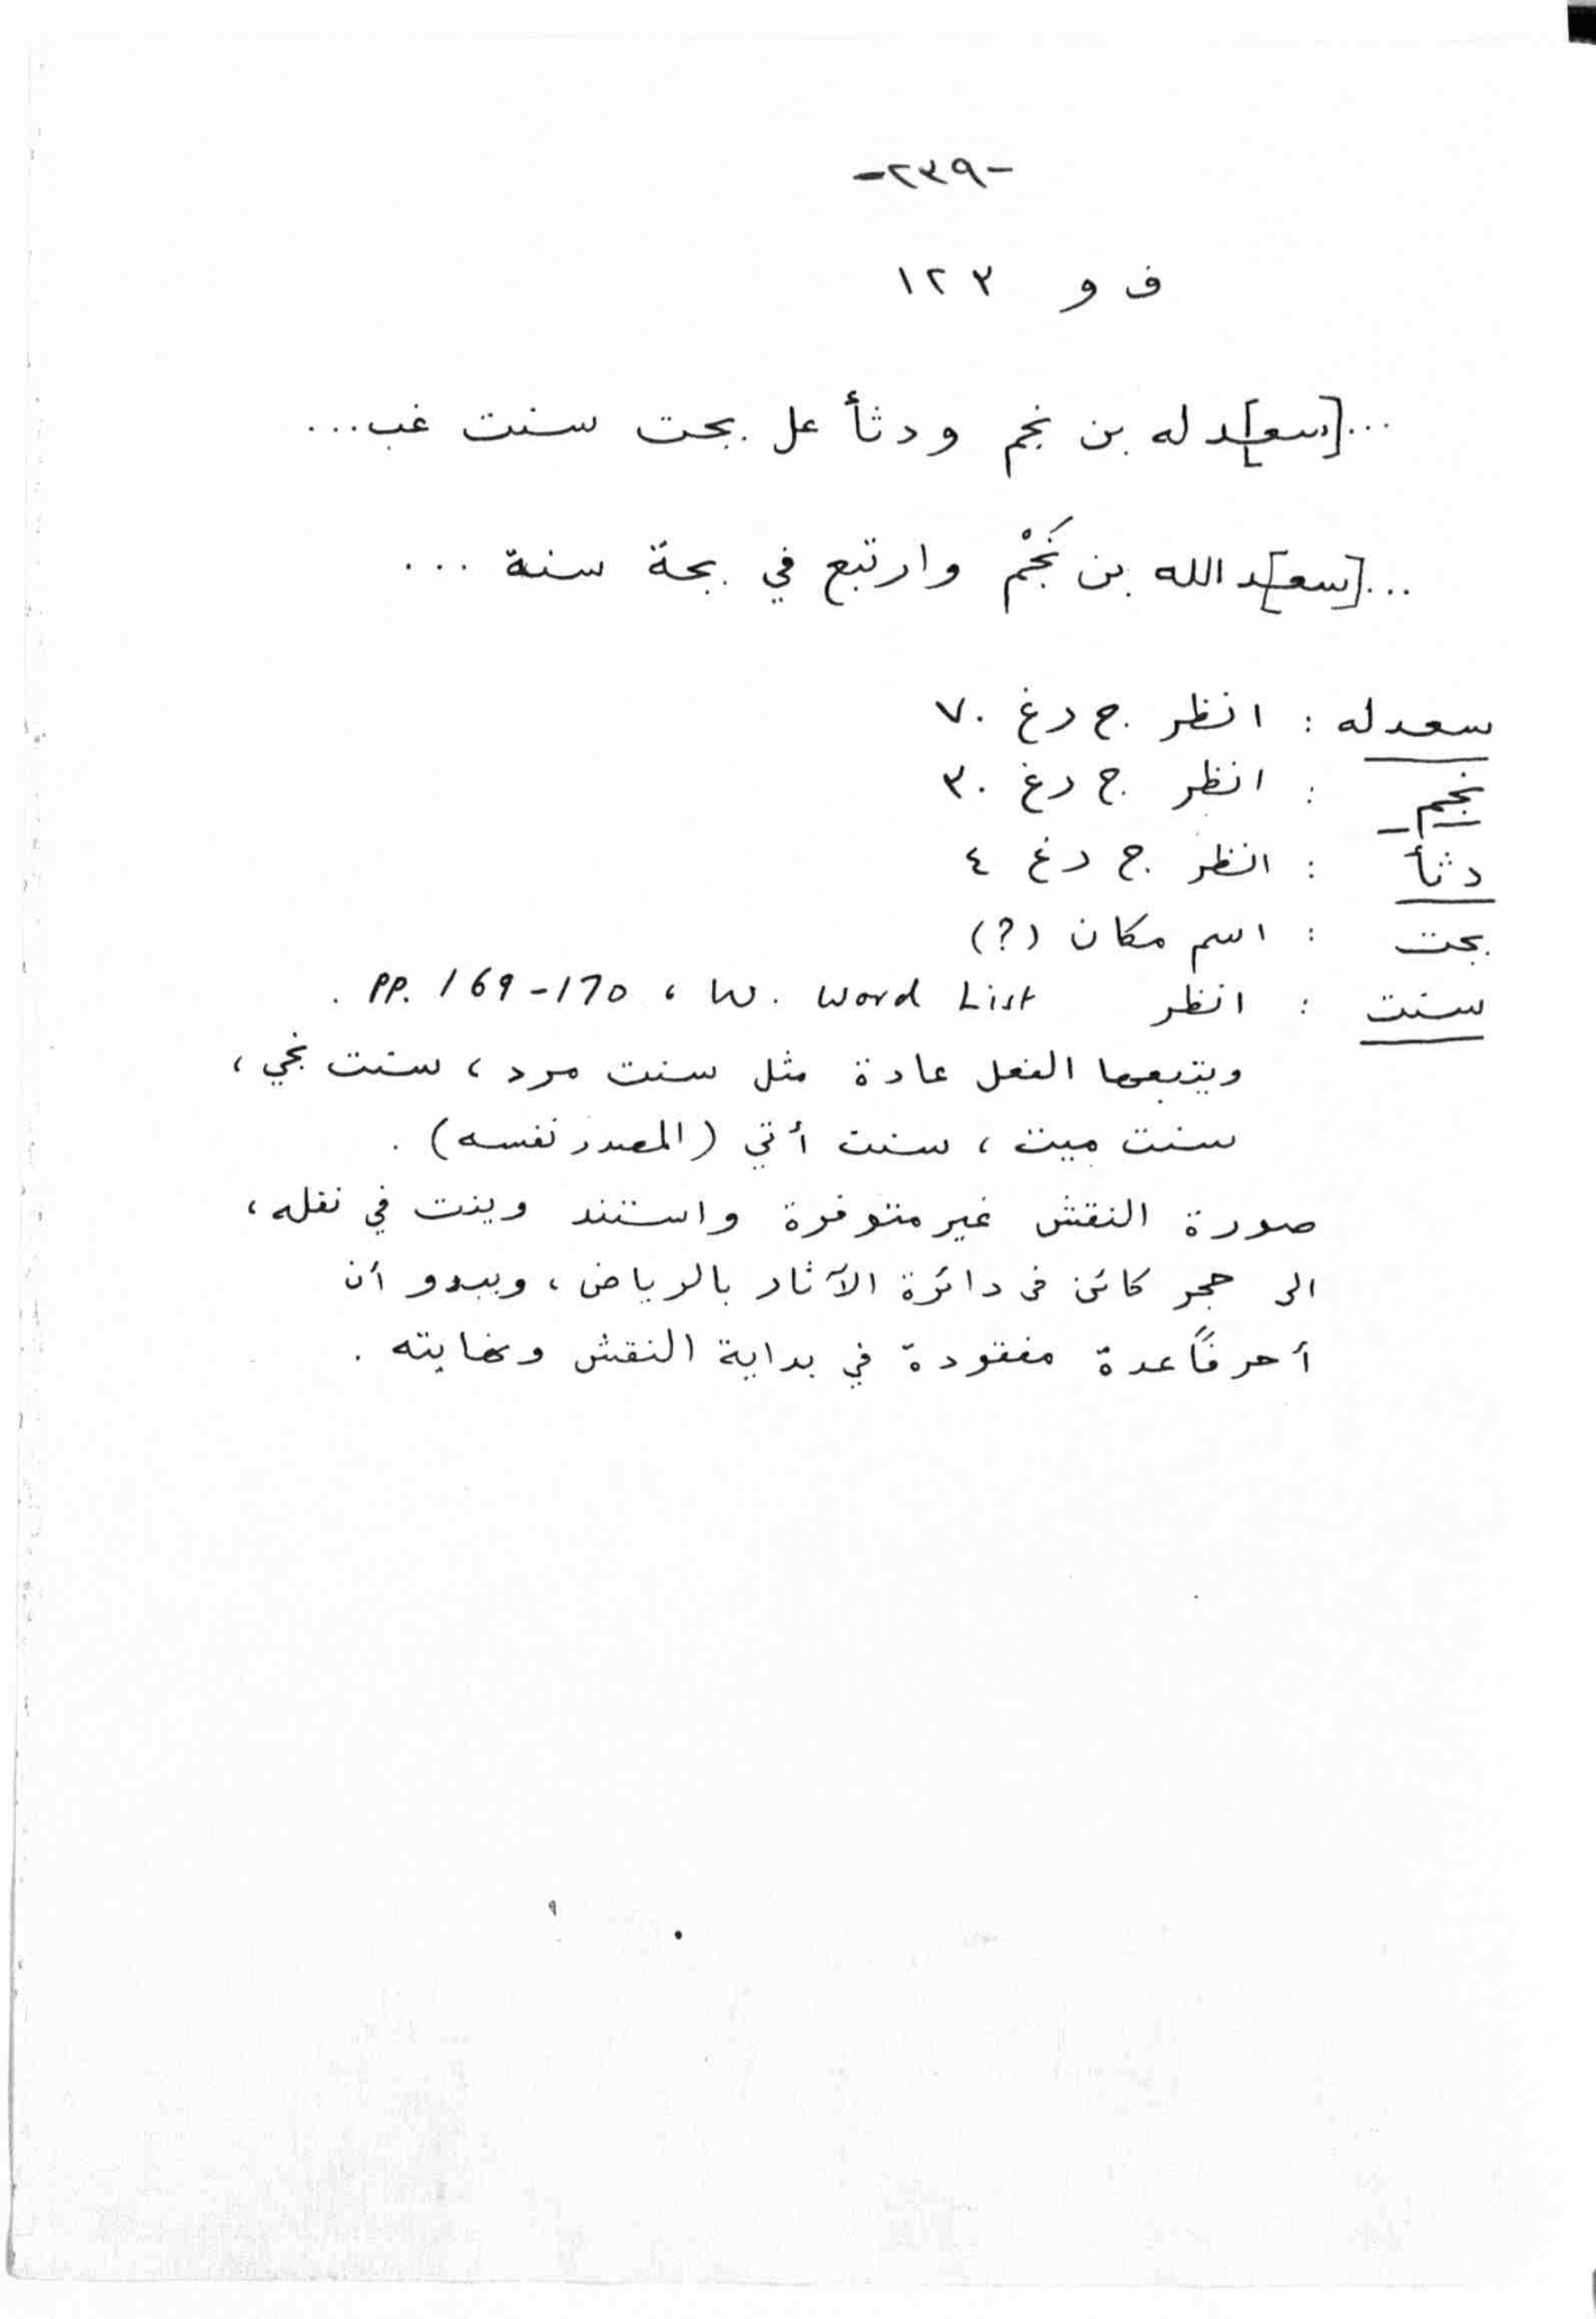 -٢٣٩-
ف و ١٢٣
...[سعـ]ـد له بن نجم ودثأ عل بحت سنت غب...
...[سعـ]ـد الله بن نَجْم وارتبع في بحة سنة ...
سعد له : انظر ج د غ ٧٠
نجم : انظر ج د غ ٣٠
دثأ : انظر ج د غ ٤
بحت : اسم مكان (؟)
سنت : انظر W. Word List ، PP. 169-170 .
ويتبعها الفعل عادة مثل سنت مرد ، سنت نجي ،
سنت ميت ، سنت أتي (المصدر نفسه) .
صورة النقش غير متوفرة واستند وينت في نقله ،
الى حجر كائن في دائرة الآثار بالرياض ، ويبدو أن
أحرفاً عدة مفقودة في بداية النقش ونهايته .